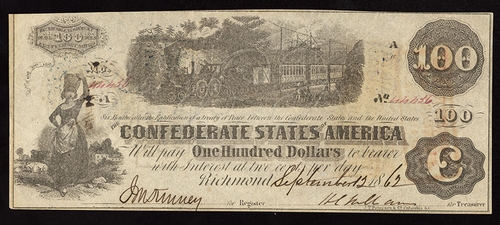 HUNDRED
100
A
100
No
No
A
100
Six Months after the Ratification of a treaty of Peace between the Confederate States and the United States
CONFEDERATE STATES AMERICA
Will pay One Hundred Dollars to bearer
with Interest at two cents per day
Richmond September 12 1862
for Register
for Treasurer
C